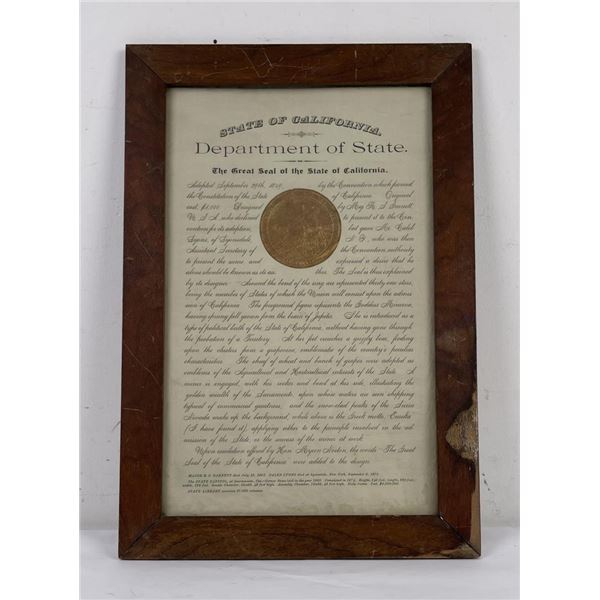 STATE OF CALIFORNIA.
Department of State.
The Great Seal of the State of California.
Adopted September 29th, 1849, by the Convention which formed
the Constitution of the State of California. Engraved
cost, $1,000. Designed by Maj. R. S. Garnett,
U. S. A., who declined to present it to the Con-
vention for its adoption, but gave Mr. Caleb
Lyons, of Lyonsdale, N. Y., who was then
Assistant Secretary of the Convention authority
to present the same and expressed a desire that he
alone should be known as its author. The Seal is thus explained
by its designer: Around the bend of the ring are represented thirty one stars,
being the number of States of which the Union will consist upon the admis-
sion of California. The foreground figure represents the Goddess Minerva,
having sprung full grown from the brain of Jupiter. She is introduced as a
type of political birth of the State of California, without having gone through
the probation of a Territory. At her feet crouches a grizzly bear, feeding
upon the clusters from a grapevine, emblematic of the country's peculiar
characteristics. The sheaf of wheat and bunch of grapes were adopted as
emblems of the Agricultural and Horticultural interests of the State. A
miner is engaged, with his rocker and bowl at his side, illustrating the
golden wealth of the Sacramento, upon whose waters are seen shipping
typical of commercial greatness, and the snow-clad peaks of the Sierra
Nevada make up the background, while above is the Greek motto, Eureka
(I have found it), applying either to the principle involved in the ad-
mission of the State, or the success of the miner at work.
Upon resolution offered by Hon. Myron Norton, the words "The Great
Seal of the State of California" were added to the design.
MAJOR R. S. GARNETT died July 13, 1861. CALEB LYONS died at Lyonsdale, New York, September 8, 1875.
The STATE CAPITOL, at Sacramento. The Corner Stone laid in the year 1861. Completed in 1874. Height, feet, length, feet,
width, feet. Senate Chamber, feet high. Assembly Chamber, feet high. Cost,
STATE LIBRARY contains volumes.